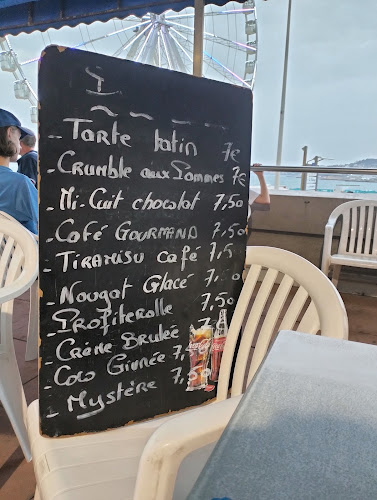 - Tarte tatin 7€
- Crumble aux Pommes 7€
- Mi-Cuit chocolat 7,50
- Café Gourmand 7,50
- Tiramisu café 7,5
- Nougat Glacé 7,50
- Profiterolle 7,50
- Crème Brulée 7,
- Coco Givrée 7,
- Mystère 7,50